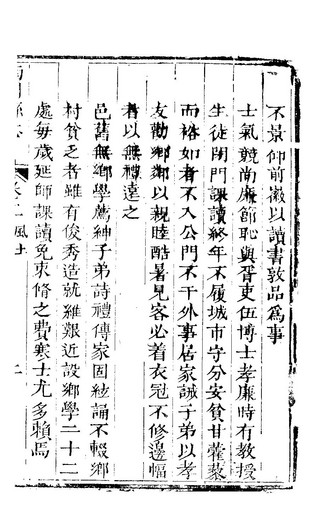 不景仰前徽以讀書敦品爲事
士氣競尚廉節恥與胥吏伍博士孝廉時有教授
生徒閉門課讀終年不履城市守分安貧甘藿藜
而裕如者不入公門不干外事居家誡子弟以孝
友勸鄉鄰以親睦酷暑見客必着衣冠不修邊幅
者以無禮遠之
邑舊無鄉學薦紳子弟詩禮傳家固絃誦不輟鄉
村貧乏者雖有俊秀造就維艱近設鄉學二十二
處每歲延師課讀免束脩之費寒士尤多賴焉
卷二風土
二